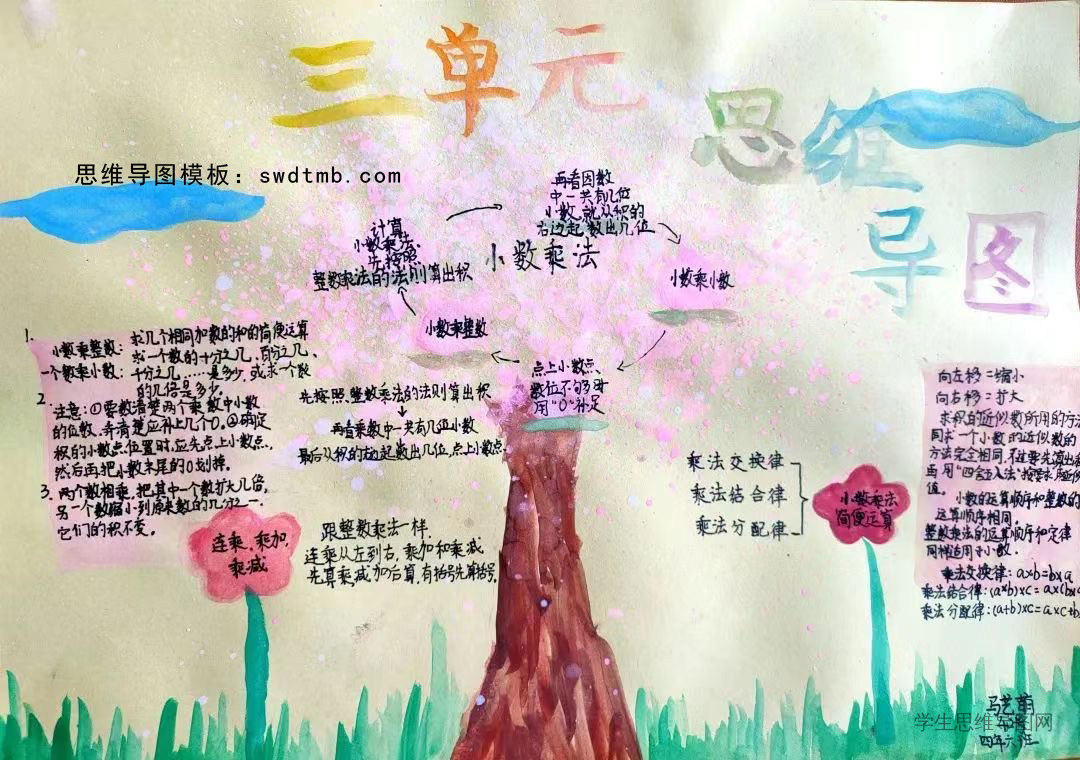 三单元
思维
导图
思维导图模板：swdtmb.com
再看因数
中一共有几位
小数,就从积的
右边起,数出几位
计算
小数乘法、
先按照
整数乘法的法则算出积
小数乘法
小数乘小数
小数乘整数
点上小数点、
数位不够多母
用"0"补足
先按照整数乘法的法则算出积
再看乘数中一共有几位小数
最后从积的右边起数出几位,点上小数点
1.
小数乘整数：求几个相同加数的和的简便运算
求一个数的十分之几、百分之几、
一个数乘小数：千分之几……是多少,或求一个数
的几倍是多少,
2.
注意：①要数清楚两个乘数中小数
的位数,弄清楚应补上几个0。②确定
积的小数点位置时,应先点上小数点,
然后再把小数末尾的0划掉。
3. 两个数相乘,把其中一个数扩大几倍,
另一个数缩小到原来数的几分之一.
它们的积不变。
连乘、乘加、
乘减
跟整数乘法一样.
连乘从左到右,乘加和乘减
先算乘,减加后算,有括号先算括号。
乘法交换律
乘法结合律
乘法分配律
小数乘法
简便运算
向左移＝缩小
向右移＝扩大
求积的近似数所用的方
同求一个小数的近似数的
方法完全相同,不过要先算出
再用"四舍五入法"按要求
值。
小数的运算顺序和整数的
运算顺序相同。
整数乘法的运算顺序和定律
同样适用于小数.
乘法交换律：a×b=b×a
乘法结合律：(a×b)×c=a×(b×
乘法分配律：(a+b)×c=a×c+b
学生思维导图网
四年六班